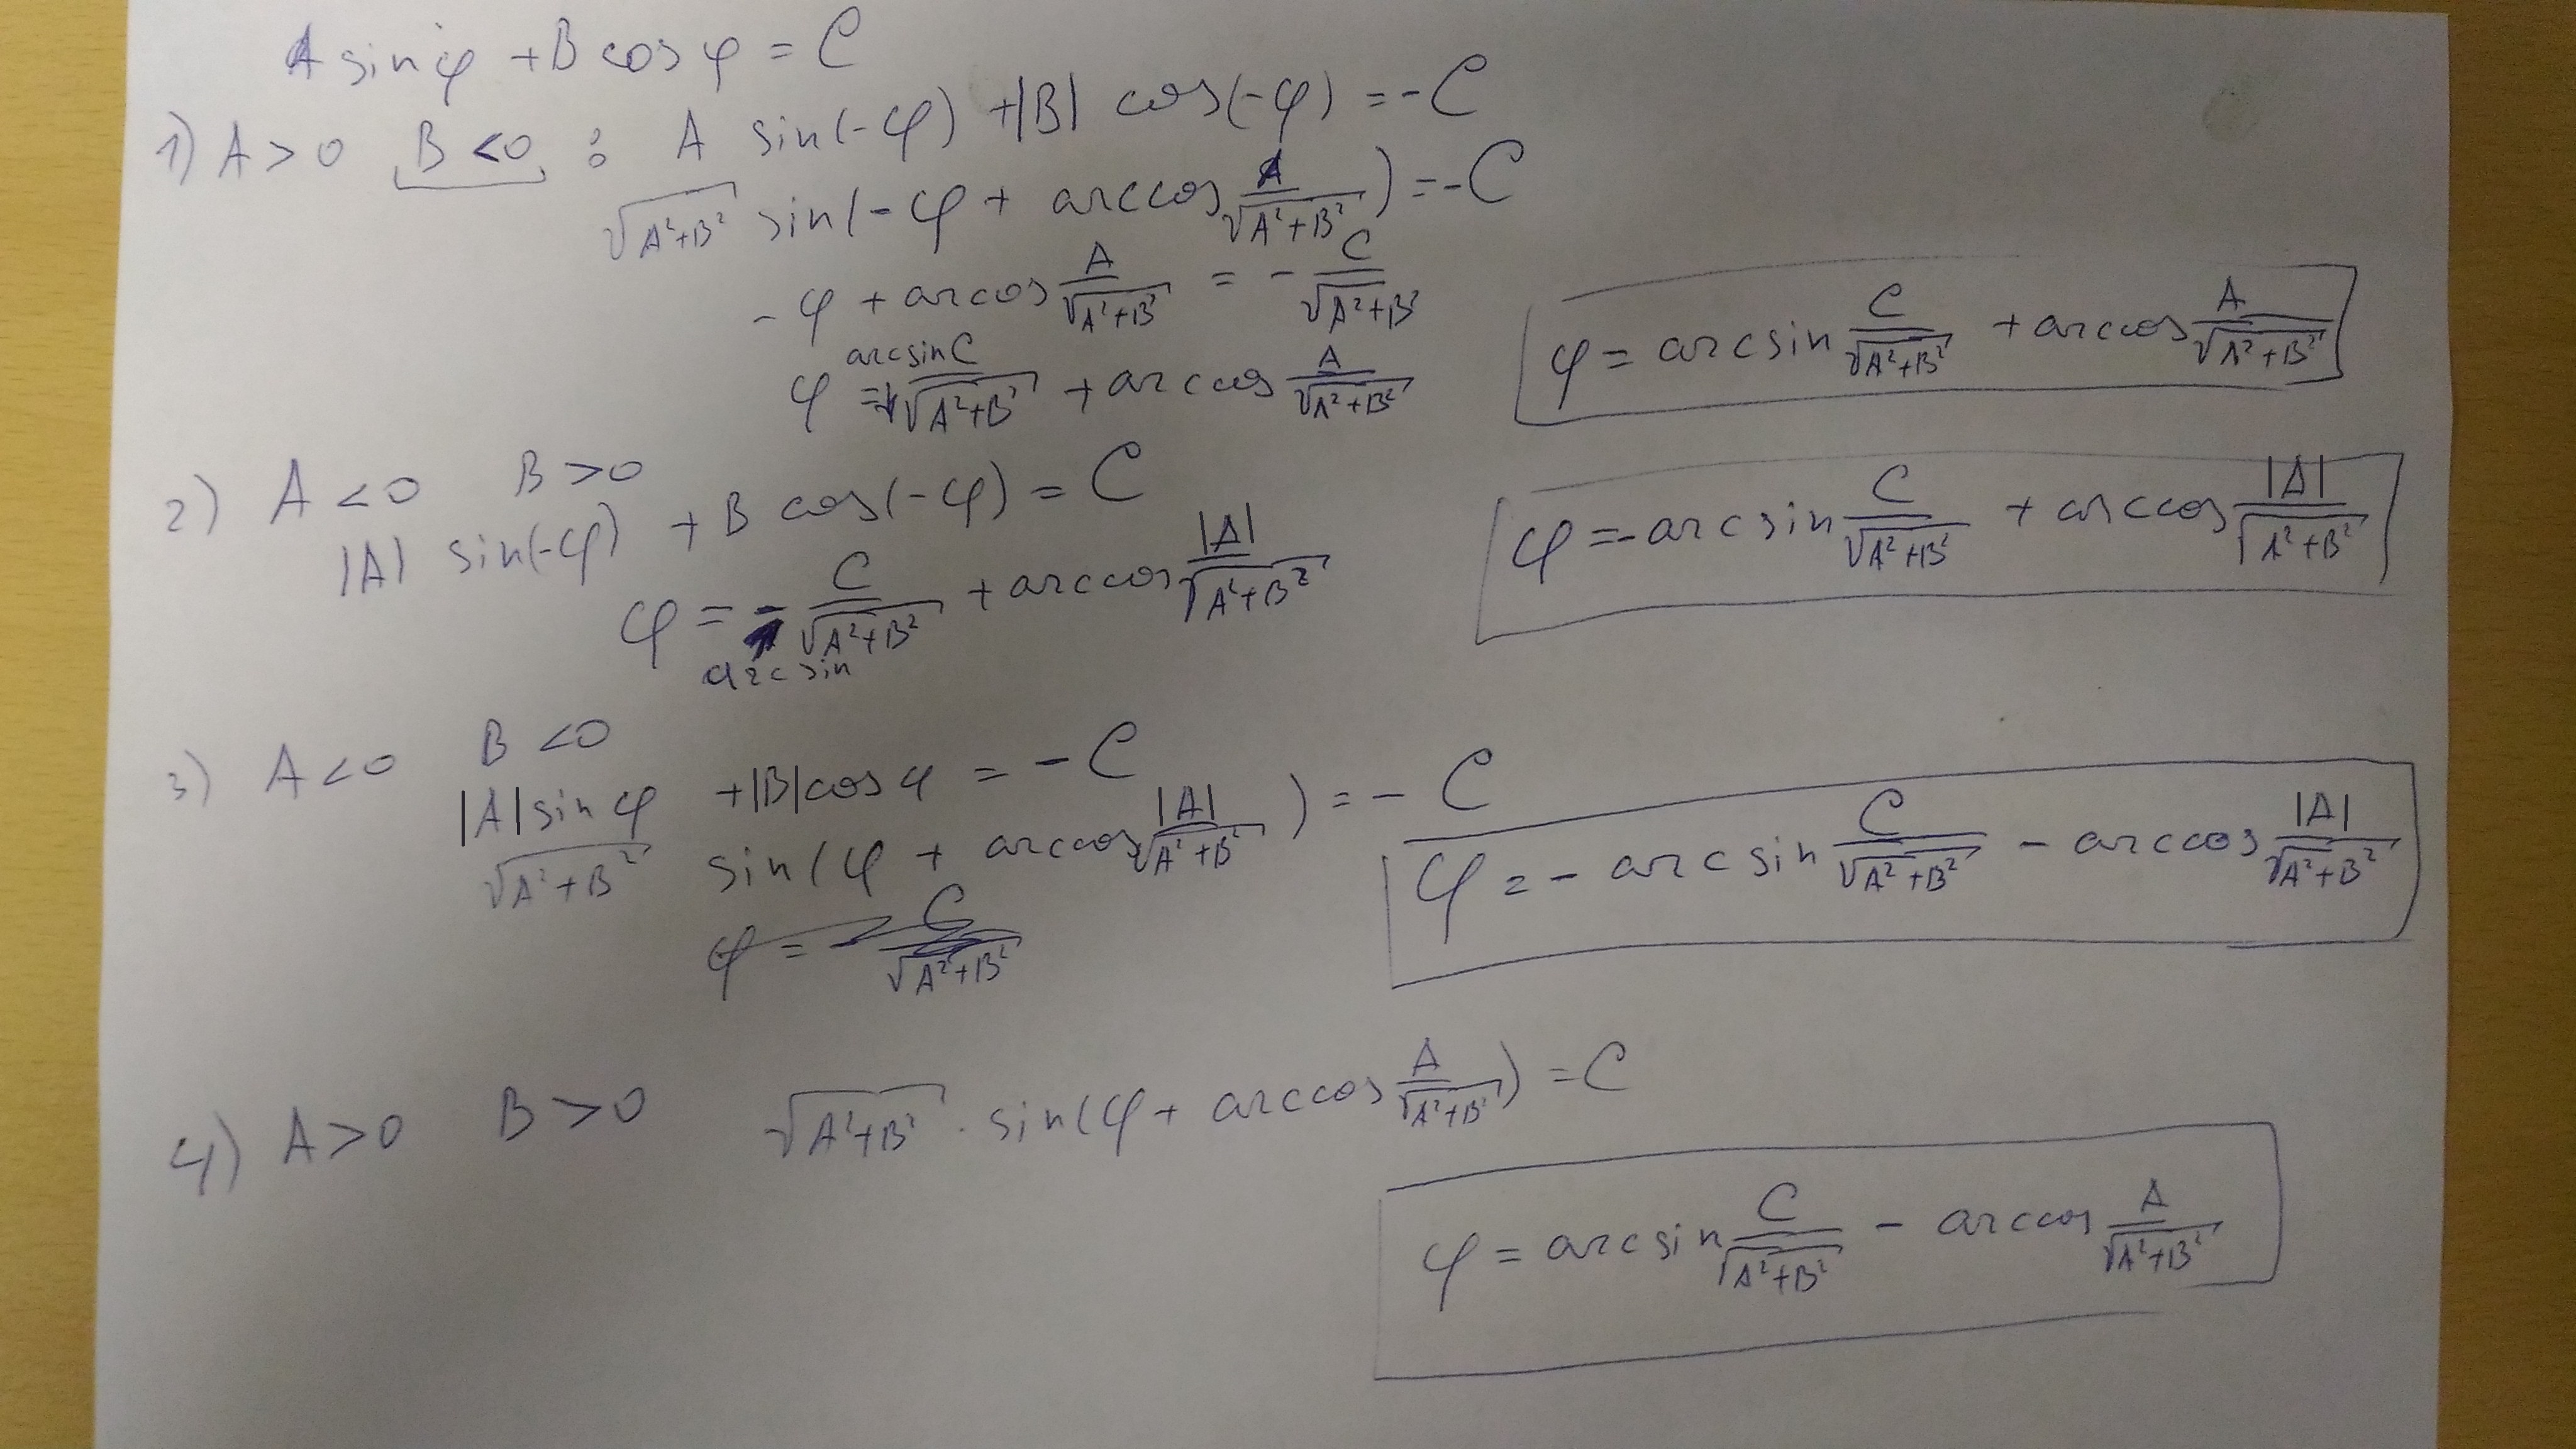 A sin φ + B cos φ = C
1) A > 0 B < 0 : A sin(-φ) + |B| cos(-φ) = -C
√(A²+B²) sin(-φ + arccos A/√(A²+B²)) = -C
-φ + arcos A/√(A²+B²) = - C/√(A²+B²)
φ = arcsin C/√(A²+B²) + arccos A/√(A²+B²)
φ = arcsin C/√(A²+B²) + arccos A/√(A²+B²)
2) A < 0 B > 0
|A| sin(-φ) + B cos(-φ) = C
φ = - arcsin C/√(A²+B²) + arccos |A|/√(A²+B²)
φ = - arcsin C/√(A²+B²) + arccos |A|/√(A²+B²)
3) A < 0 B < 0
|A| sin φ + |B| cos φ = - C
√(A²+B²) sin(φ + arccos |A|/√(A²+B²)) = - C
φ = - C/√(A²+B²)
φ = - arcsin C/√(A²+B²) - arccos |A|/√(A²+B²)
4) A > 0 B > 0 √(A²+B²) · sin(φ + arccos A/√(A²+B²)) = C
φ = arcsin C/√(A²+B²) - arccos A/√(A²+B²)